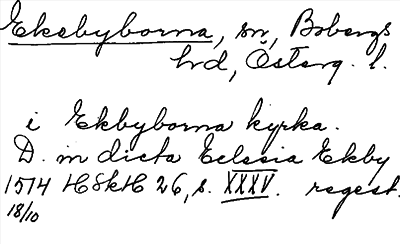 Ekebyborna, sn, Bobergs
hrd, Österg. l.
i Ekbyborna kyrka.
D. in dicta Eclesia Ekby
1574 HSkH 26, s. XXXV. regest.
18/10